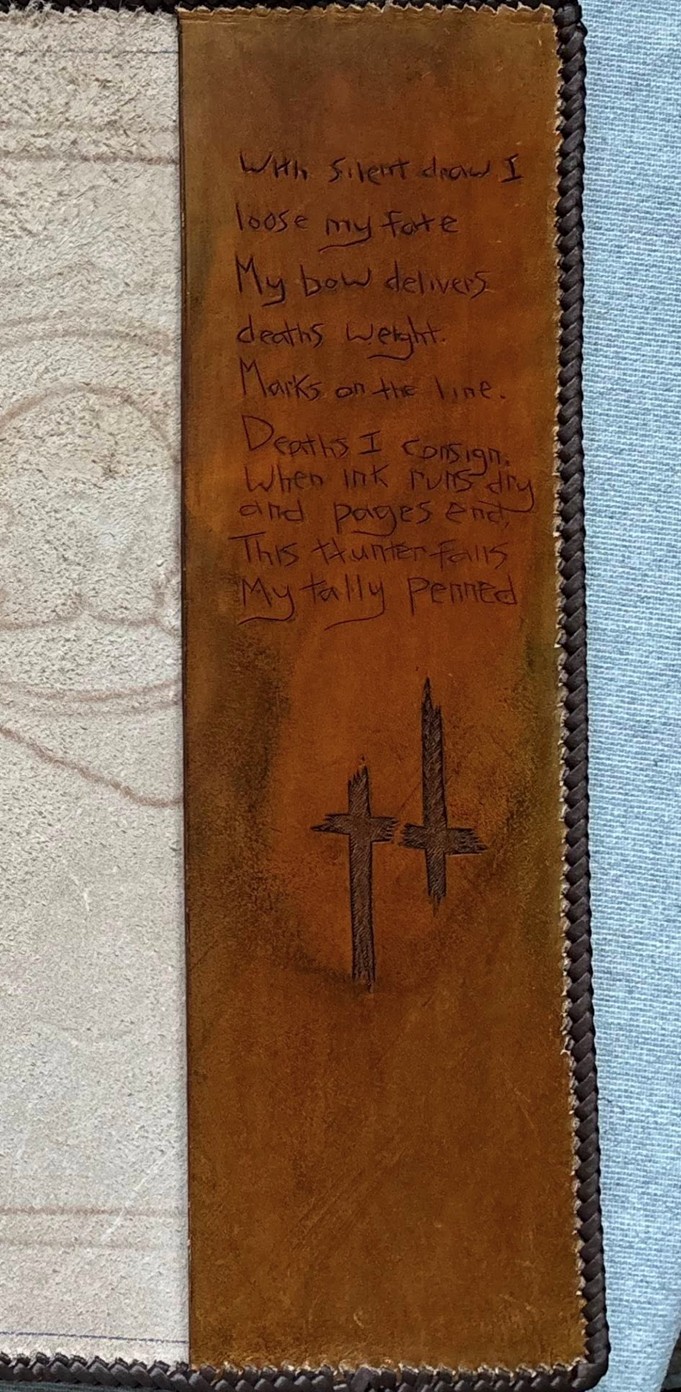 With silent draw I
loose my fate
My bow delivers
deaths weight.
Marks on the line.
Deaths I consign.
When ink runs dry
and pages end,
This Hunter falls
My tally Penned